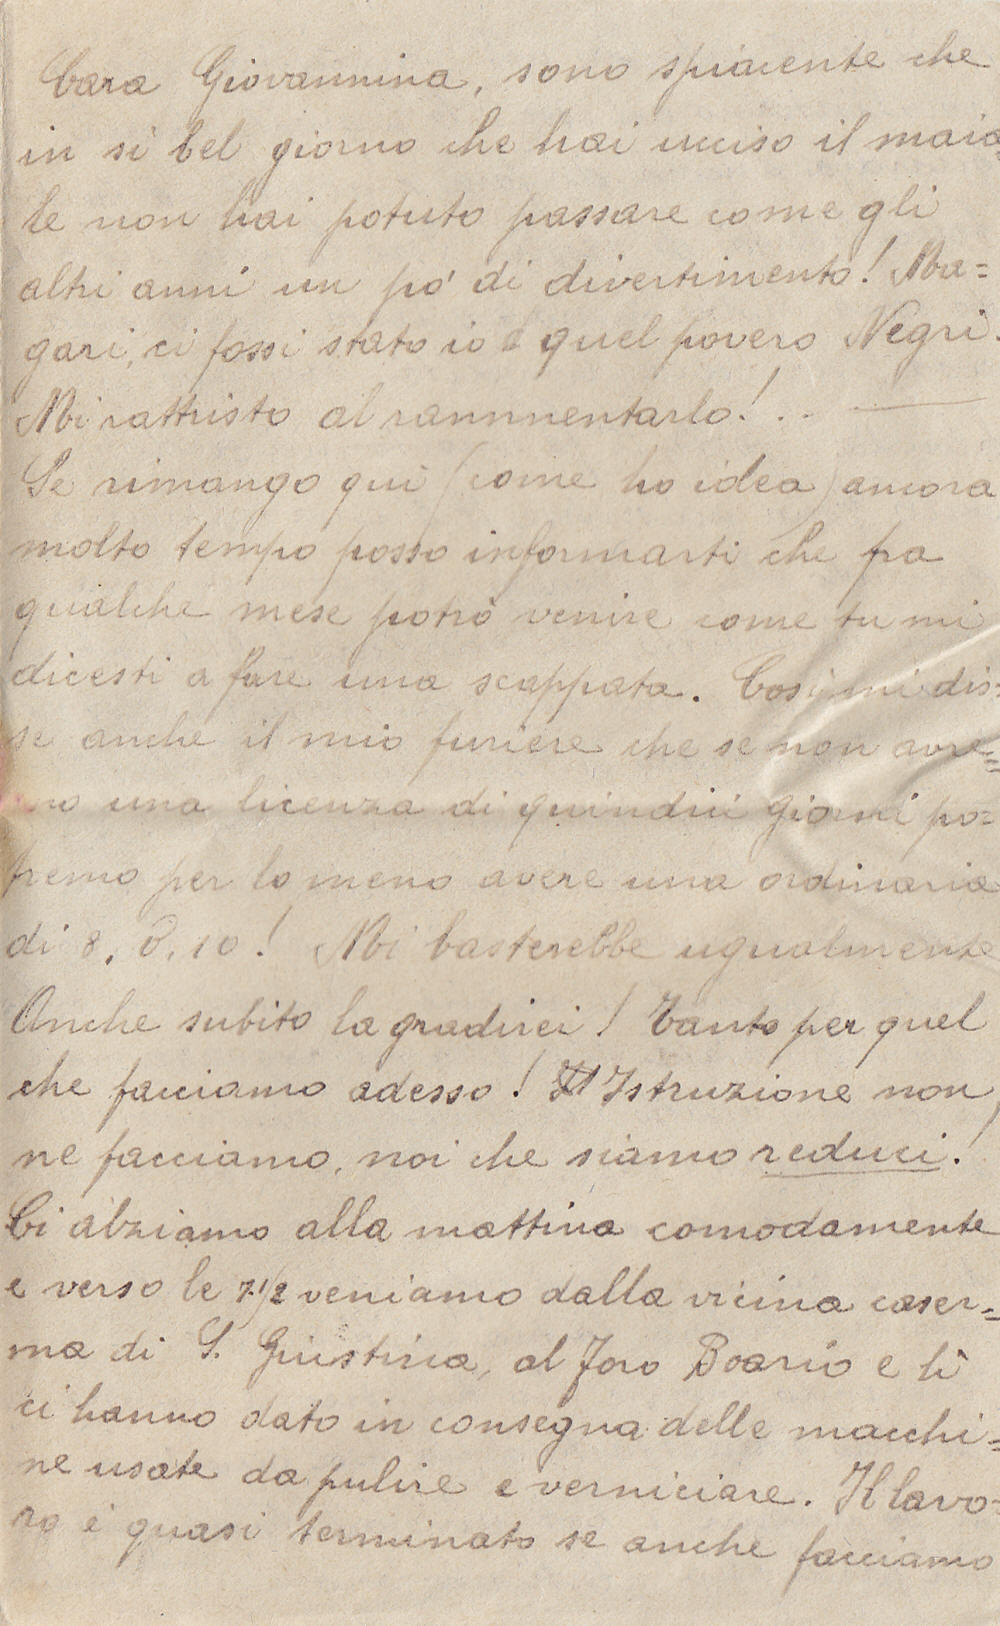 Cara Giovannina, sono spiacente che
in sì bel giorno che hai ucciso il maia
le non hai potuto passare come gli
altri anni un po' di divertimento! Ma=
gari, ci fossi stato io e quel povero Negri.
Mi rattristo al rammentarlo!..
Se rimango qui (come ho idea) ancora
molto tempo posso informarti che fra
qualche mese potrò venire come tu mi
dicesti a fare una scappata. Così mi dis=
se anche il mio furiere che se non avre=
mo una licenza di quindici giorni po=
tremo per lo meno avere una ordinaria
di 8, 10! Mi basterebbe ugualmente
Anche subito la gradirei! Tanto per quel
che facciamo adesso! Istruzione non
ne facciamo, noi che siamo reduci!
Ci alziamo alla mattina comodamente
e verso le 7 1/2 veniamo dalla vicina caser=
ma di S. Giustina, al Foro Boario e lì
ci hanno dato in consegna delle macchi=
ne usate da pulire e verniciare. Il lavo=
ro è quasi terminato se anche facciamo